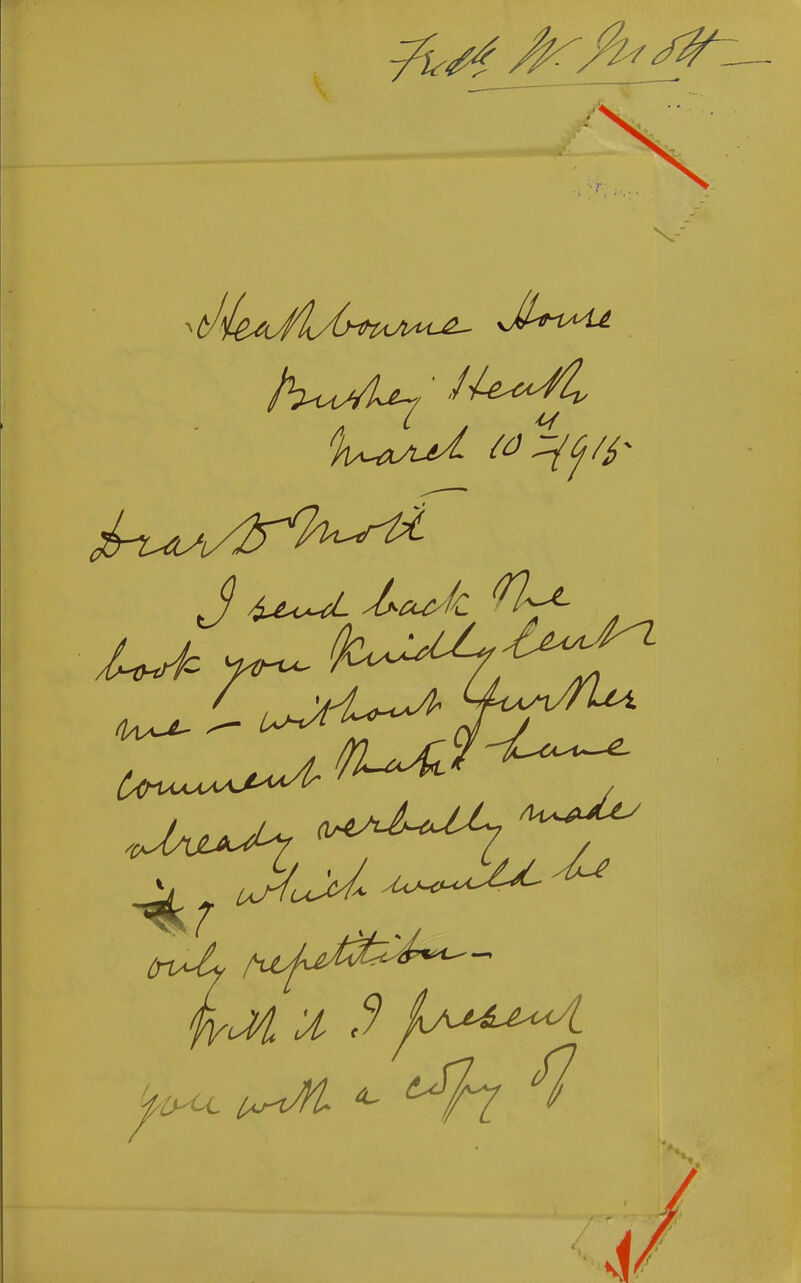 Fredk W. Mott
Heathbourne House
Bushey Heath
March 10th 1915
Dear Dr Mott
I send back the
book you kindly lent
me — without further
comment than I have
already verbally made
, which would be
only repetition —
With it I present
you with a copy of